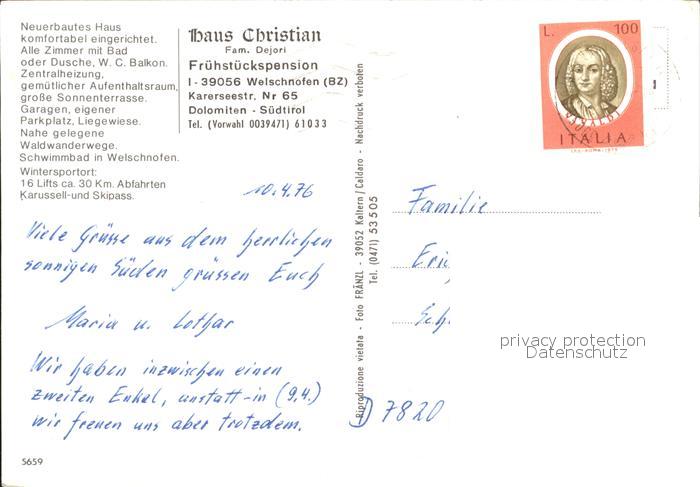 Neuerbautes Haus
komfortabel eingerichtet.
Alle Zimmer mit Bad
oder Dusche, W. C. Balkon.
Zentralheizung,
gemütlicher Aufenthaltsraum,
große Sonnenterrasse.
Garagen, eigener
Parkplatz, Liegewiese.
Nahe gelegene
Waldwanderwege.
Schwimmbad in Welschnofen.
Wintersportort:
16 Lifts ca. 30 Km. Abfahrten
Karussell-und Skipass.
Haus Christian
Fam. Dejori
Frühstückspension
I - 39056 Welschnofen (BZ)
Karerseestr. Nr 65
Dolomiten - Südtirol
Tel. (Vorwahl 0039471) 61033
10.4.76
Viele Grüsse aus dem herrlichen
sonnigen Süden grüssen Euch
Maria u. Lothar
Wir haben inzwischen einen
zweiten Enkel, anstatt -in (9.4.)
wir freuen uns aber trotzdem.
5659
Riproduzione vietata - Foto FRÄNZL - 39052 Kaltern / Caldaro - Nachdruck verboten
Tel. (0471) 53505
L. 100
VIVALDI
ITALIA
Familie
Eri
Sch.
D 7820
privacy protection
Datenschutz